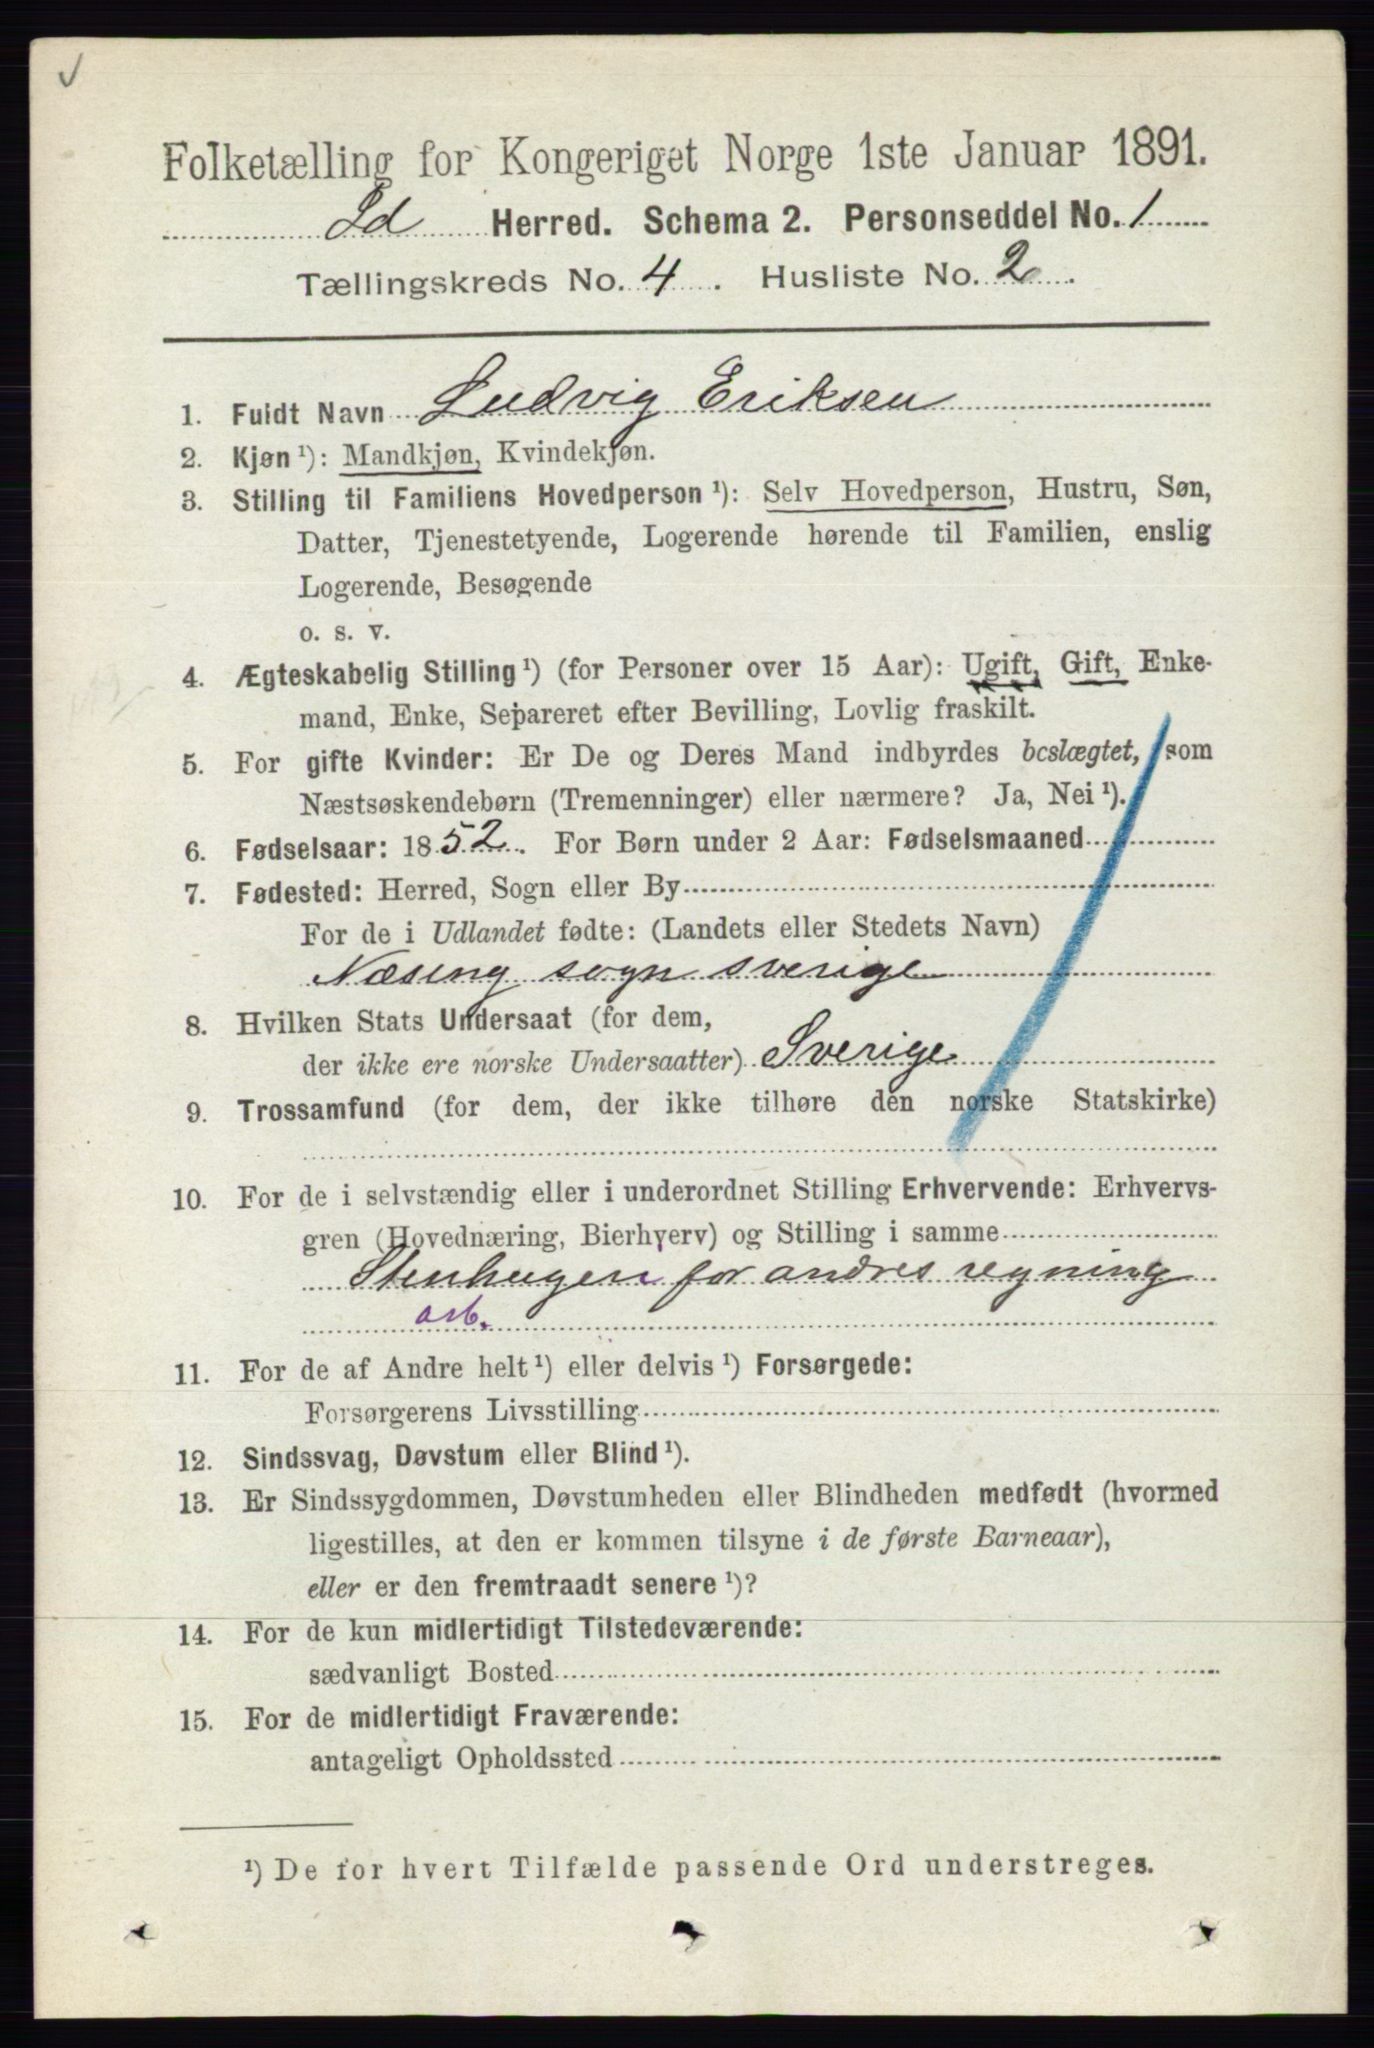 Folketælling for Kongeriget Norge 1ste Januar 1891.
Id Herred. Schema 2. Personseddel No. 1
Tællingskreds No. 4. Husliste No. 2.
1. Fuldt Navn Ludvig Eriksen
2. Kjøn ¹): Mandkjøn, Kvindekjøn.
3. Stilling til Familiens Hovedperson ¹): Selv Hovedperson, Hustru, Søn,
Datter, Tjenestetyende, Logerende hørende til Familien, enslig
Logerende, Besøgende
o. s. v.
4. Ægteskabelig Stilling ¹) (for Personer over 15 Aar): Ugift, Gift, Enke-
mand, Enke, Separeret efter Bevilling, Lovlig fraskilt.
5. For gifte Kvinder: Er De og Deres Mand indbyrdes beslægtet, som
Næstsøskendebørn (Tremenninger) eller nærmere? Ja, Nei ¹).
6. Fødselsaar: 1852. For Børn under 2 Aar: Fødselsmaaned
7. Fødested: Herred, Sogn eller By
For de i Udlandet fødte: (Landets eller Stedets Navn)
Næsing sogn sverige
8. Hvilken Stats Undersaat (for dem,
der ikke ere norske Undersaatter) Sverige
9. Trossamfund (for dem, der ikke tilhøre den norske Statskirke)
10. For de i selvstændig eller i underordnet Stilling Erhvervende: Erhvervs-
gren (Hovednæring, Bierhverv) og Stilling i samme
Stenhugeri for andres regning
arb.
11. For de af Andre helt ¹) eller delvis ¹) Forsørgede:
Forsørgerens Livsstilling
12. Sindssvag, Døvstum eller Blind ¹).
13. Er Sindssygdommen, Døvstumheden eller Blindheden medfødt (hvormed
ligestilles, at den er kommen tilsyne i de første Barneaar),
eller er den fremtraadt senere ¹)?
14. For de kun midlertidigt Tilstedeværende:
sædvanligt Bosted
15. For de midlertidigt Fraværende:
antageligt Opholdssted
¹) De for hvert Tilfælde passende Ord understreges.